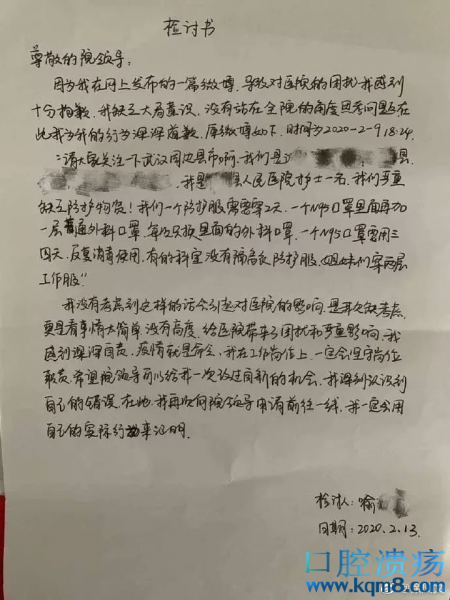 检讨书
尊敬的院领导:
因为我在网上发布的一篇微博,导致对医院的困扰我感到
十分抱歉,我缺乏大局意识,没有站在全院的角度思考问题,在
此我为我的行为深深道歉,原微博如下,时间为2020-2-9 18:24.
"请大家关注一下武汉周边县市啊,我们是 县,
我是 县人民医院护士一名,我们严重
缺乏防护物资!我们一个防护服需要穿2天,一个N95口罩里面再加
一层普通外科口罩,每次只换里面的外科口罩,一个N95口罩需用三
四天,反复消毒使用,有的科室没有隔离衣防护服,姐妹们穿两层
工作服."
我没有考虑到这样的话会引起对医院的影响,是我欠缺考虑,
更是看事情太简单,没有高度,给医院带来了困扰和严重影响,我
感到深深自责,疫情就是命令,我在工作岗位上,一定会坚守岗位
职责,希望院领导可以给我一次改过自新的机会,我深刻认识到
自己的错误,在此,我再次向院领导申请前往一线,我一定会用
自己的实际行动来证明.
检讨人:喻
日期:2020.2.13.
口腔溃疡
www.kqm8.com